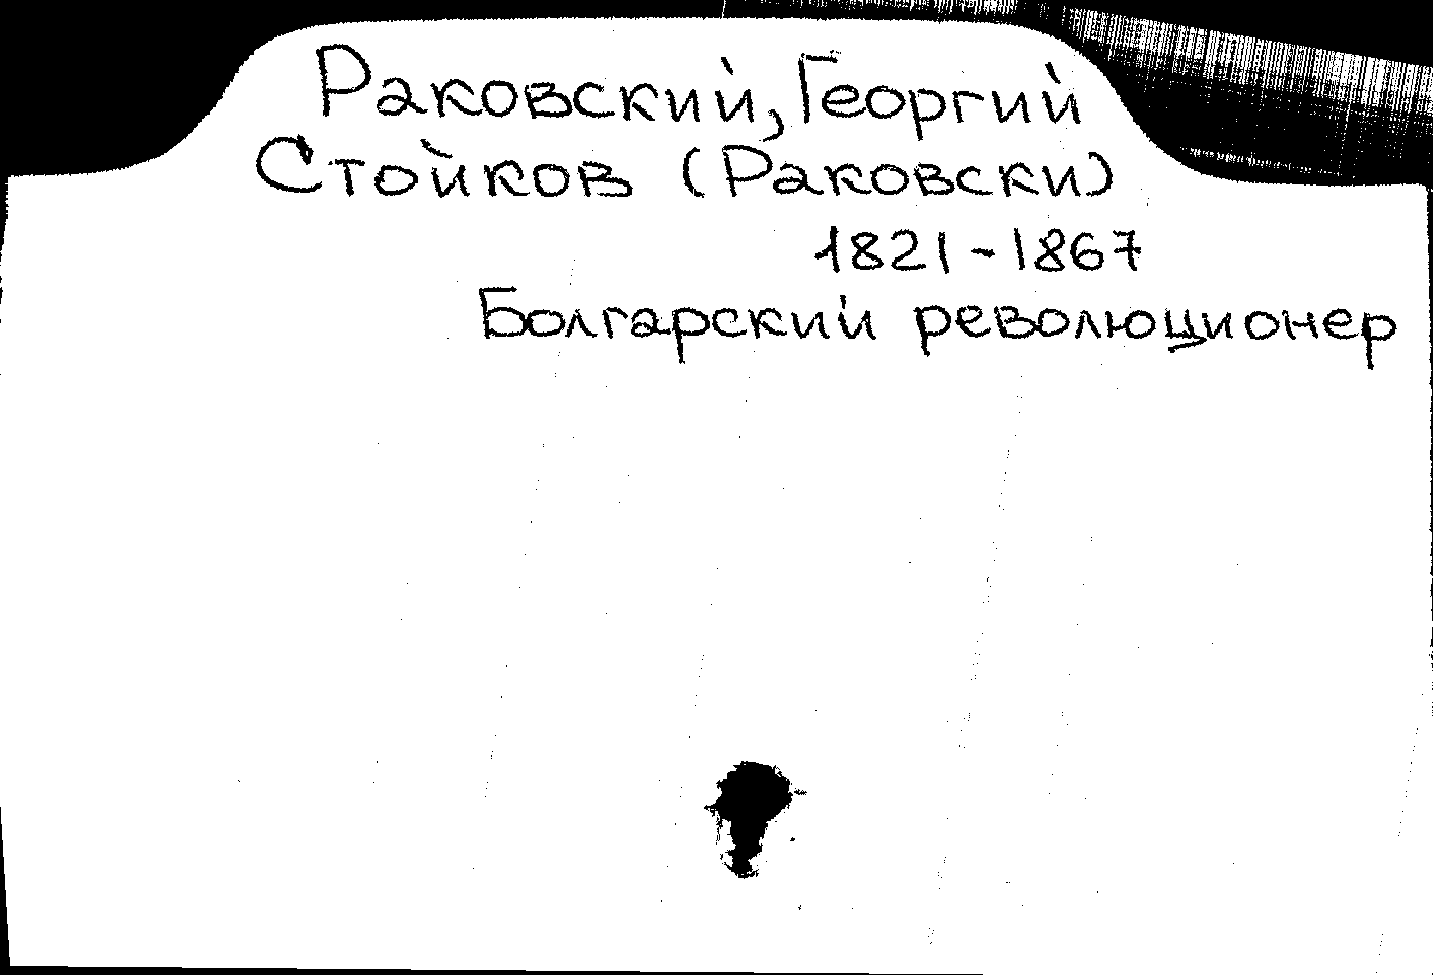 Раковский, Георгий
Стойков (Раковски)
1821-1867
Болгарский революционер